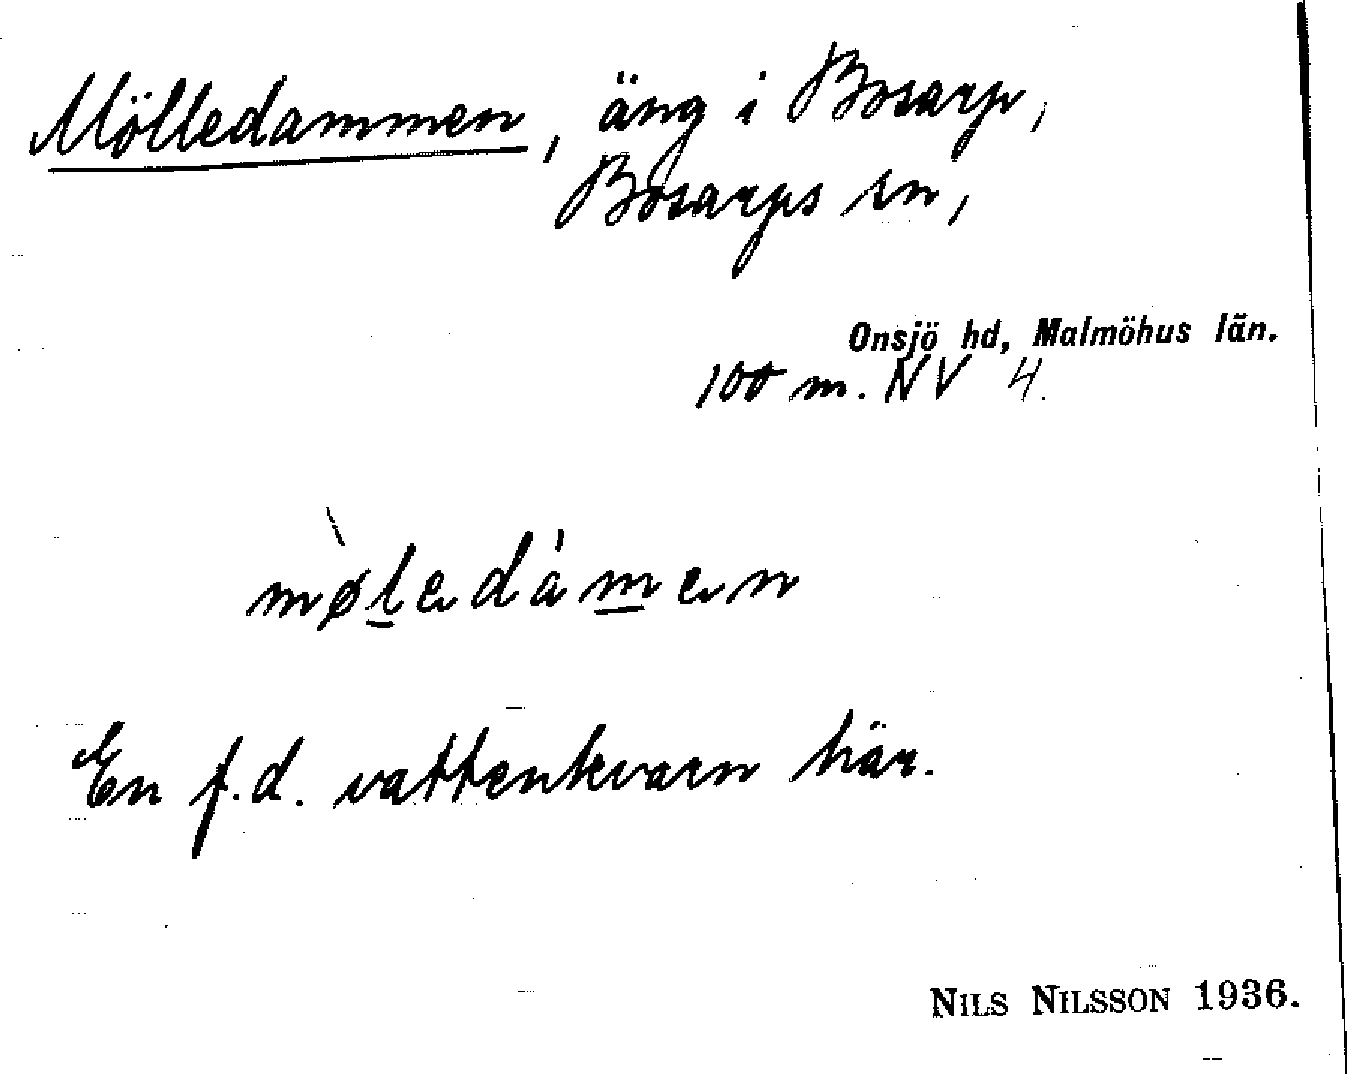 Mölledammen, äng i Bosarp,
Bosarps sn,
Onsjö hd, Malmöhus län.
100 m. NV 4.
mø̀l̲edám̲en
En f.d. vattenkvarn här.
NILS NILSSON 1936.